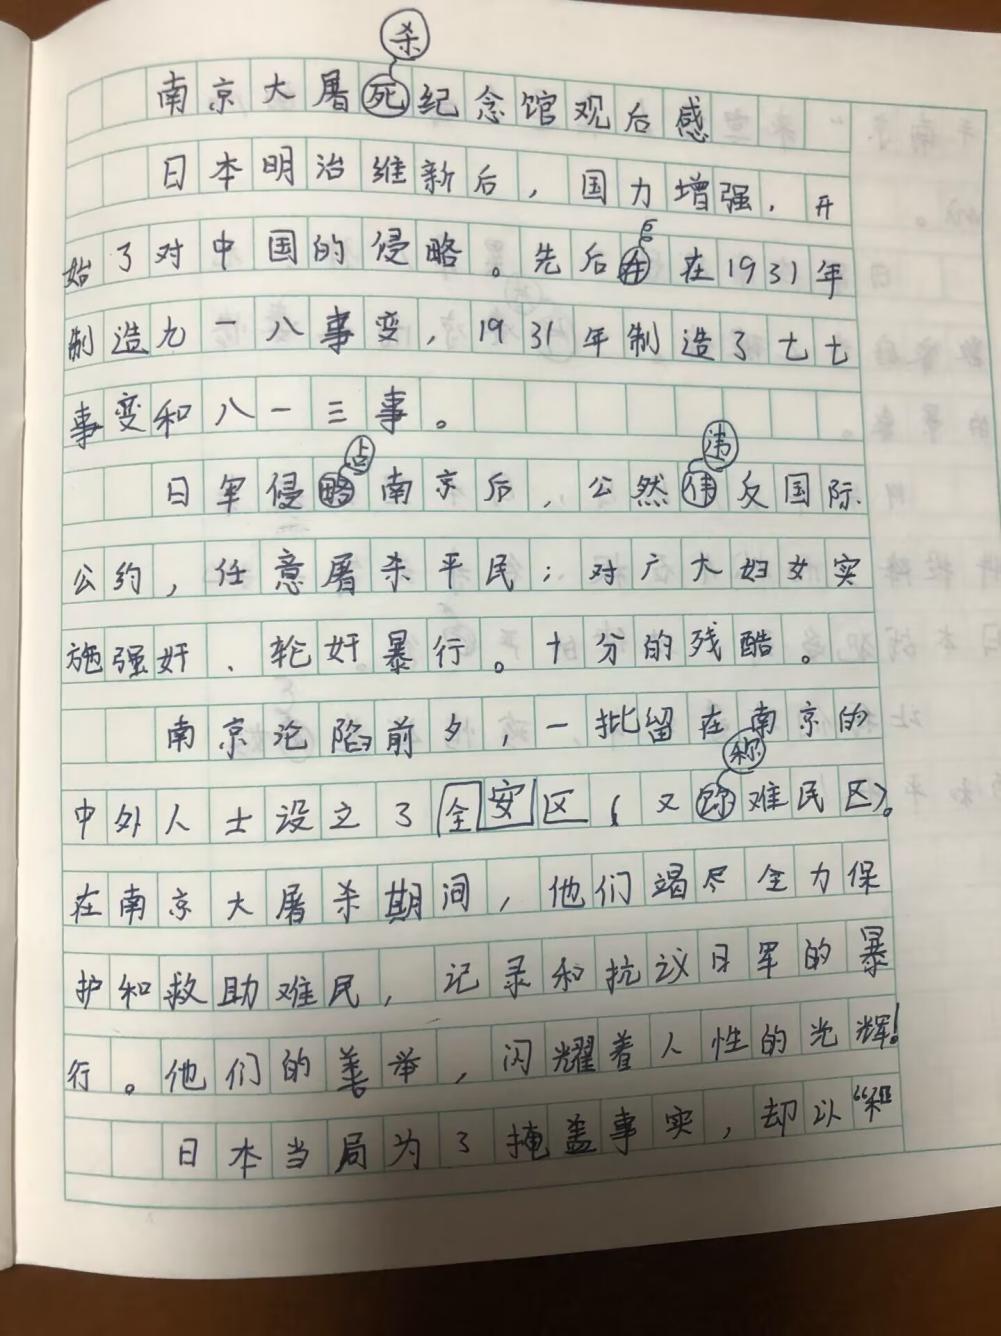 杀
南京大屠死纪念馆观后感
日本明治维新后，国力增强，开
始了对中国的侵略。先后在在1931年
制造九一八事变，1931年制造了七七
事变和八一三事。
占 违
日军侵略南京后，公然伟反国际
公约，任意屠杀平民；对广大妇女实
施强奸、轮奸暴行。十分的残酷。
南京沦陷前夕，一批留在南京的
称
中外人士设立了全安区（又难民区）。
在南京大屠杀期间，他们竭尽全力保
护和救助难民，记录和抗议日军的暴
行。他们的善举，闪耀着人性的光辉！
日本当局为了掩盖事实，却以“和